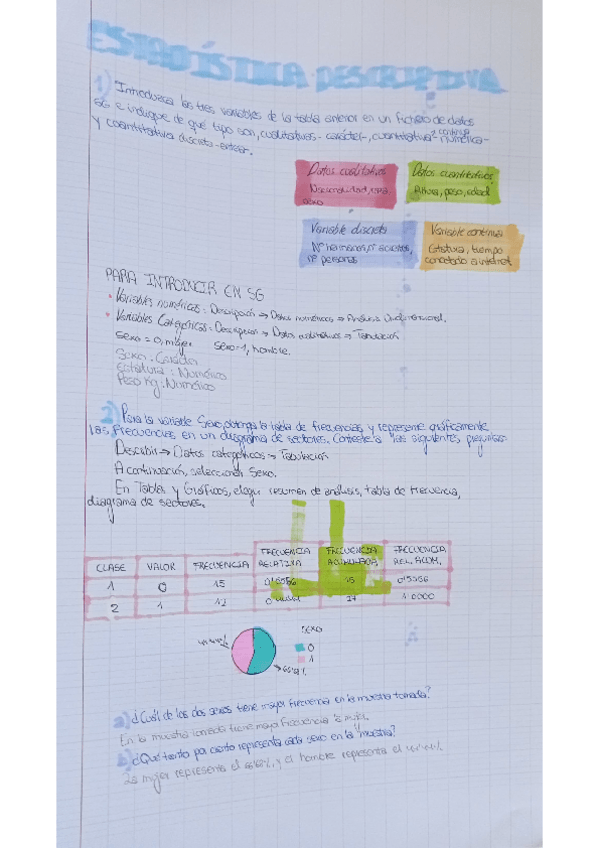 ESTADÍSTICA DESCRIPTIVA
1) Introduzca las tres variables de la tabla anterior en un fichero de datos
SG e indique de qué tipo son, cualitativas - carácter-, cuantitativa continua - numérica -
y cuantitativa discreta - entera.
Datos cualitativos
Nacionalidad, raza,
sexo
Datos cuantitativos
Altura, peso, edad
Variable discreta
Nº hermanos, nº
nº personas
Variable continua
Estatura, tiempo
conectado a internet
PARA INTRODUCIR EN SG
• Variables numéricas: Descripción → Datos numéricos → Análisis Unidimensional.
• Variables Categóricas: Descripción → Datos cualitativos → Tabulación
Sexo = 0, mujer sexo = 1, hombre.
Sexo: Carácter
Estatura: Numérico
Peso Kg: Numérico
2) Para la variable Sexo, obtenga la tabla de frecuencias y represente gráficamente
las frecuencias en un diagrama de sectores. Conteste a las siguientes preguntas
Describir → Datos categóricos → Tabulación
A continuación, seleccionar Sexo.
En Tablas y Gráficos, elegir resumen de análisis, tabla de frecuencia,
diagrama de sectores.
CLASE VALOR FRECUENCIA FRECUENCIA RELATIVA FRECUENCIA ACUMULADA FRECUENCIA REL. ACUM.
1 0 15 0'5556 15 0'5556
2 1 12 27 1.0000
SEXO
0
1
a) ¿Cuál de los dos sexos tiene mayor frecuencia en la muestra tomada?
En la muestra tomada tiene mayor frecuencia la mujer.
b) ¿Qué tanto por ciento representa cada sexo en la muestra?
La mujer representa el y el hombre representa el 44'44%